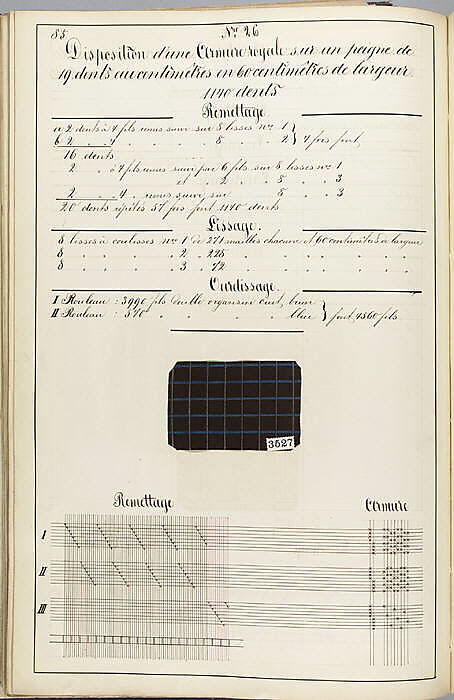 85
No. 26
Disposition d'une Armure royale sur un peigne de
19 dents au centimètres en 60 centimètres de largeur
1140 dents
Remettage
a 2 dents à 4 fils remis suivi sur 8 lisses no. 1
b 2 . . 4 . . . . 8 . . 2 } 4 fois font
16 dents
2 . . à 4 fils remis suivi par 6 fils sur 8 lisses no. 1
2 . . 8 . . 3
2 . . 4 . . remis suivi sur 8 . . 3
20 dents répétés 57 fois font 1140 dents
Lissage.
8 lisses à coulisses no. 1 de 271 mailles chacune et 60 centimètres largeur
8 . . . . . 2 . 228 . . . . . .
8 . . . . . 3 . 72 . . . . . .
Ourdissage.
I Rouleau : 3990 fils organsin cuit, brun
II Rouleau : 570 . . . . bleu } font 4560 fils
3527
Remettage
Armure
I
II
III